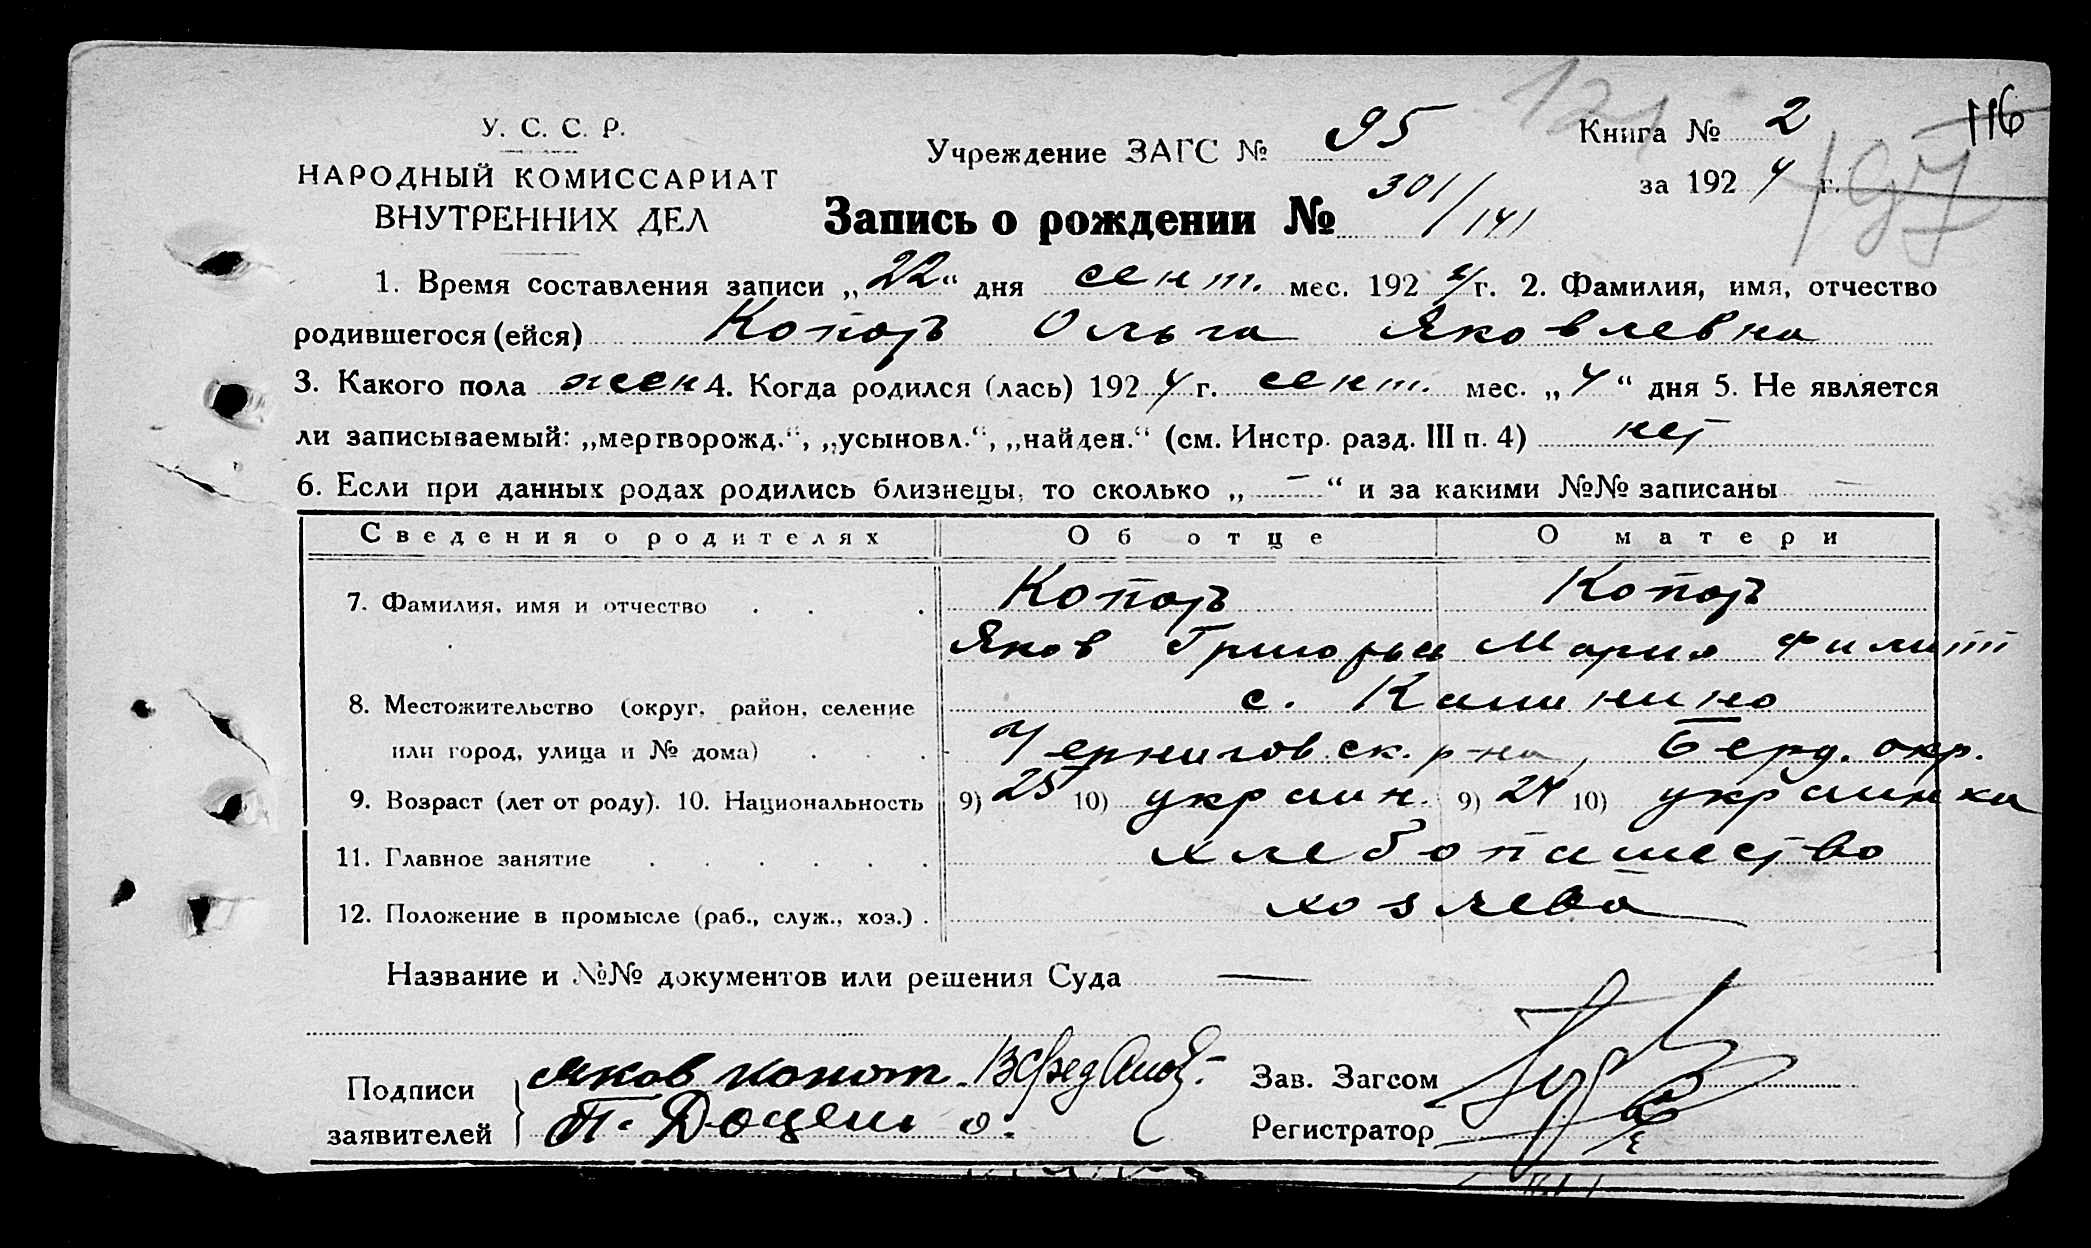 121
116
197
У. С. С. Р.
НАРОДНЫЙ КОМИССАРИАТ
ВНУТРЕННИХ ДЕЛ
Учреждение ЗАГС № 95
Книга № 2
за 1924 г.
Запись о рождении № 301/141
1. Время составления записи „22“ дня сент. мес. 1924 г. 2. Фамилия, имя, отчество
родившегося (ейся) Ольга Яковлевна
3. Какого пола жен 4. Когда родился (лась) 1924 г. сент. мес. „4“ дня 5. Не является
ли записываемый: „мертворожд.“, „усыновл.“, „найден.“ (см. Инстр. разд. III п. 4) нет
6. Если при данных родах родились близнецы, то сколько „ – “ и за какими №№ записаны —
Сведения о родителях Об отце О матери
7. Фамилия, имя и отчество
Яков Григорьев Мария Филип
8. Местожительство (округ, район, селение с. Калинино
или город, улица и № дома) Черниговск. р-на, Берд. окр.
9. Возраст (лет от роду). 10. Национальность 9) 25 10) украин. 9) 24 10) украинка
11. Главное занятие хлебопашество
12. Положение в промысле (раб., служ., хоз.) хозяева
Название и №№ документов или решения Суда —
Подписи Яков
заявителей П. Доценко.
Зав. Загсом
Регистратор